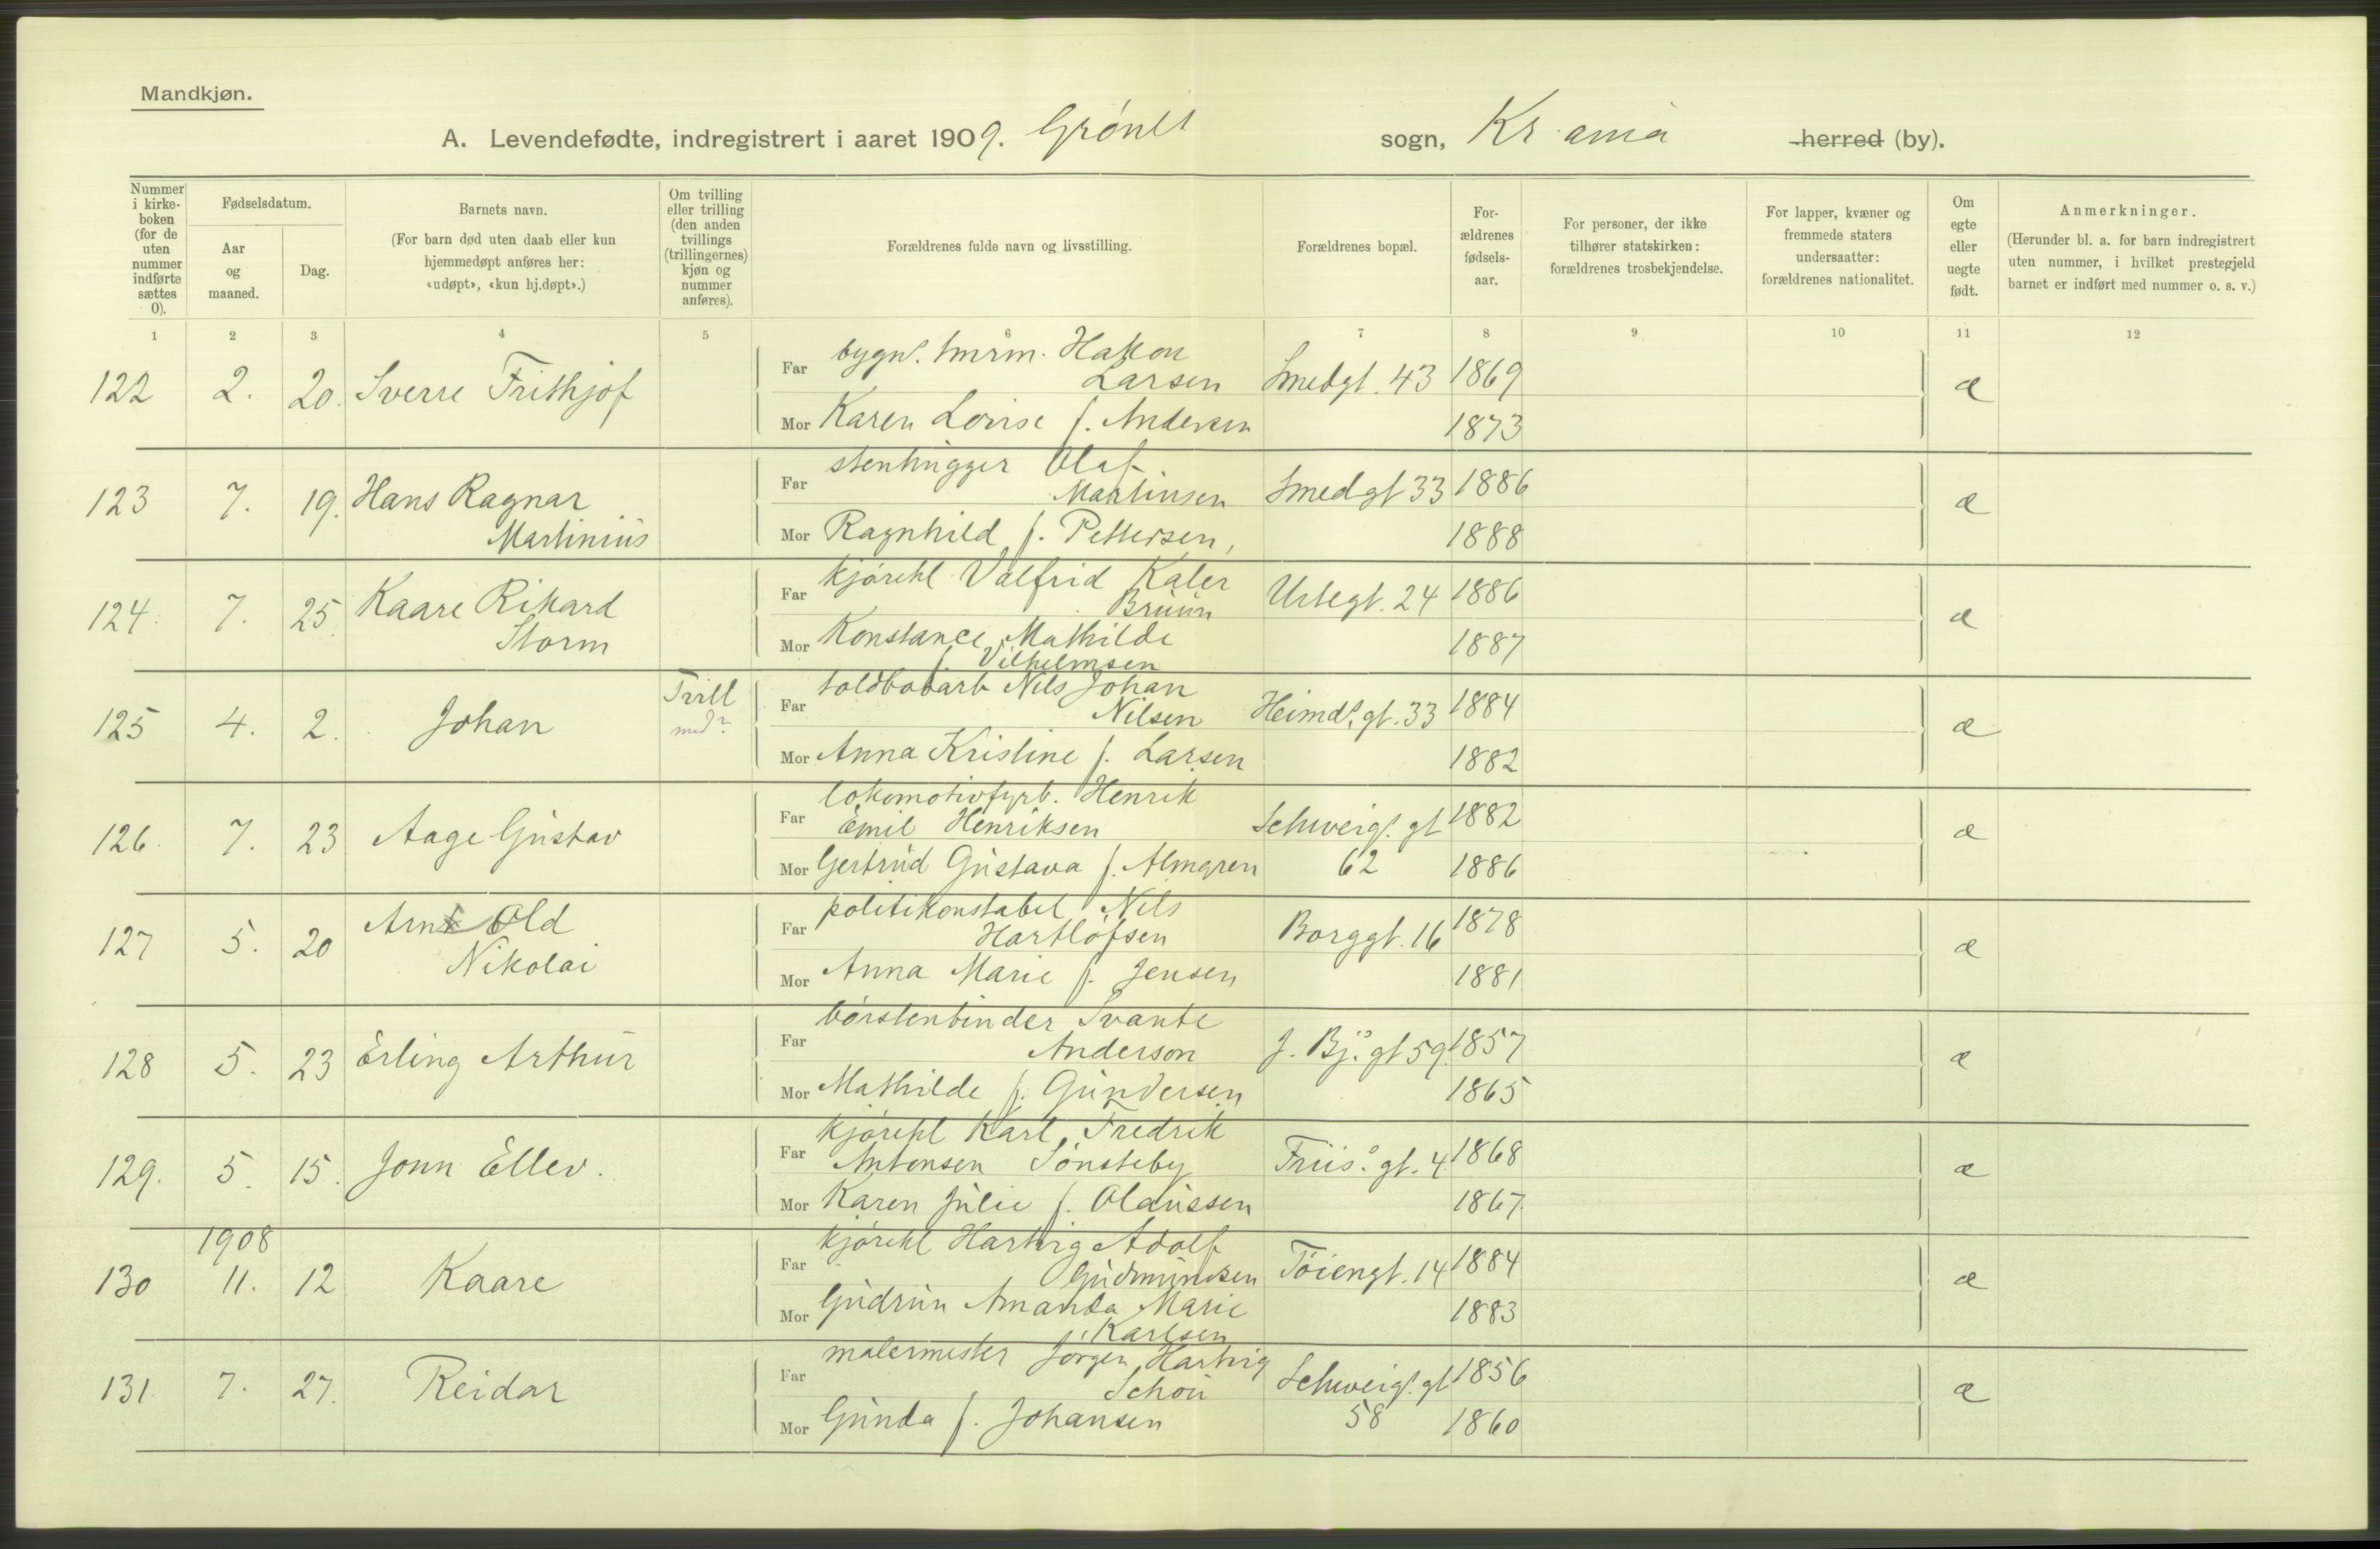 Mandkjøn.
A. Levendefødte, indregistrert i aaret 1909. Grønl sogn, Kr ania herred (by).
Nummer i kirke-boken (for de uten nummer indførte sættes 0).
Fødselsdatum.
Aar og maaned.
Dag.
Barnets navn.
(For barn død uten daab eller kun hjemmedøpt anføres her: «udøpt», «kun hj.døpt».)
Om tvilling eller trilling (den anden tvillings (trillingernes) kjøn og nummer anføres).
Forældrenes fulde navn og livsstilling.
Forældrenes bopæl.
For-ældrenes fødsels-aar.
For personer, der ikke tilhører statskirken: forældrenes trosbekjendelse.
For lapper, kvæner og fremmede staters undersaatter: forældrenes nationalitet.
Om egte eller uegte født.
Anmerkninger.
(Herunder bl. a. for barn indregistrert uten nummer, i hvilket prestegjeld barnet er indført med nummer o. s. v.)
1 2 3 4 5 6 7 8 9 10 11 12
122 2. 20. Sverre Frithjof
Far bygn. tmrm. Hakon Larsen Smedgt. 43 1869 æ
Mor Karen Lovise f. Andersen 1873
123 7. 19. Hans Ragnar Martinius
Far stenhugger Olaf Martinsen Smedgt 33 1886 æ
Mor Ragnhild f. Pettersen, 1888
124. 7. 25. Kaare Rikard Storm
Far kjørekl Valfrid Kaler Bruun Urtegt. 24 1886 æ
Mor Konstance Mathilde f. Vilhelmsen 1887
125 4. 2. Johan
Far toldbodarb Nils Johan Nilsen Heimd.s gt. 33 1884 æ
Mor Anna Kristine f. Larsen 1882
126. 7. 23 Aage Gustav
Far lokomotivfyrb. Henrik Emil Henriksen Schweig. gt 62 1882 æ
Mor Gertrud Gustava f. Almgren 1886
127 5. 20 Arnt Old Nikolai
Far politikonstabel Nils Hartlofsen Borggt. 16 1878 æ
Mor Anna Marie f. Jensen 1881
128 5. 23 Erling Arthur
Far børstenbinder Svante Anderson J. Bj.s gt 59. 1857 æ
Mor Mathilde f. Gundersen 1865
129. 5. 15. Jonn Ellev.
Far kjørekl Karl Fredrik Antonsen Sønsteby Friis. gt. 4 1868 æ
Mor Karen Julie f. Olaussen 1867
130 1908 11. 12 Kaare
Far kjørekl Hartvig Adolf Gudmundsen Tøiengt. 14 1884 æ
Mor Gudrun Amanda Marie f. Karlsen 1883
131. 7. 27. Reidar
Far malermester Jørgen Hartvig Schou Schweig. gt 58 1856 æ
Mor Gunda f. Johansen 1860